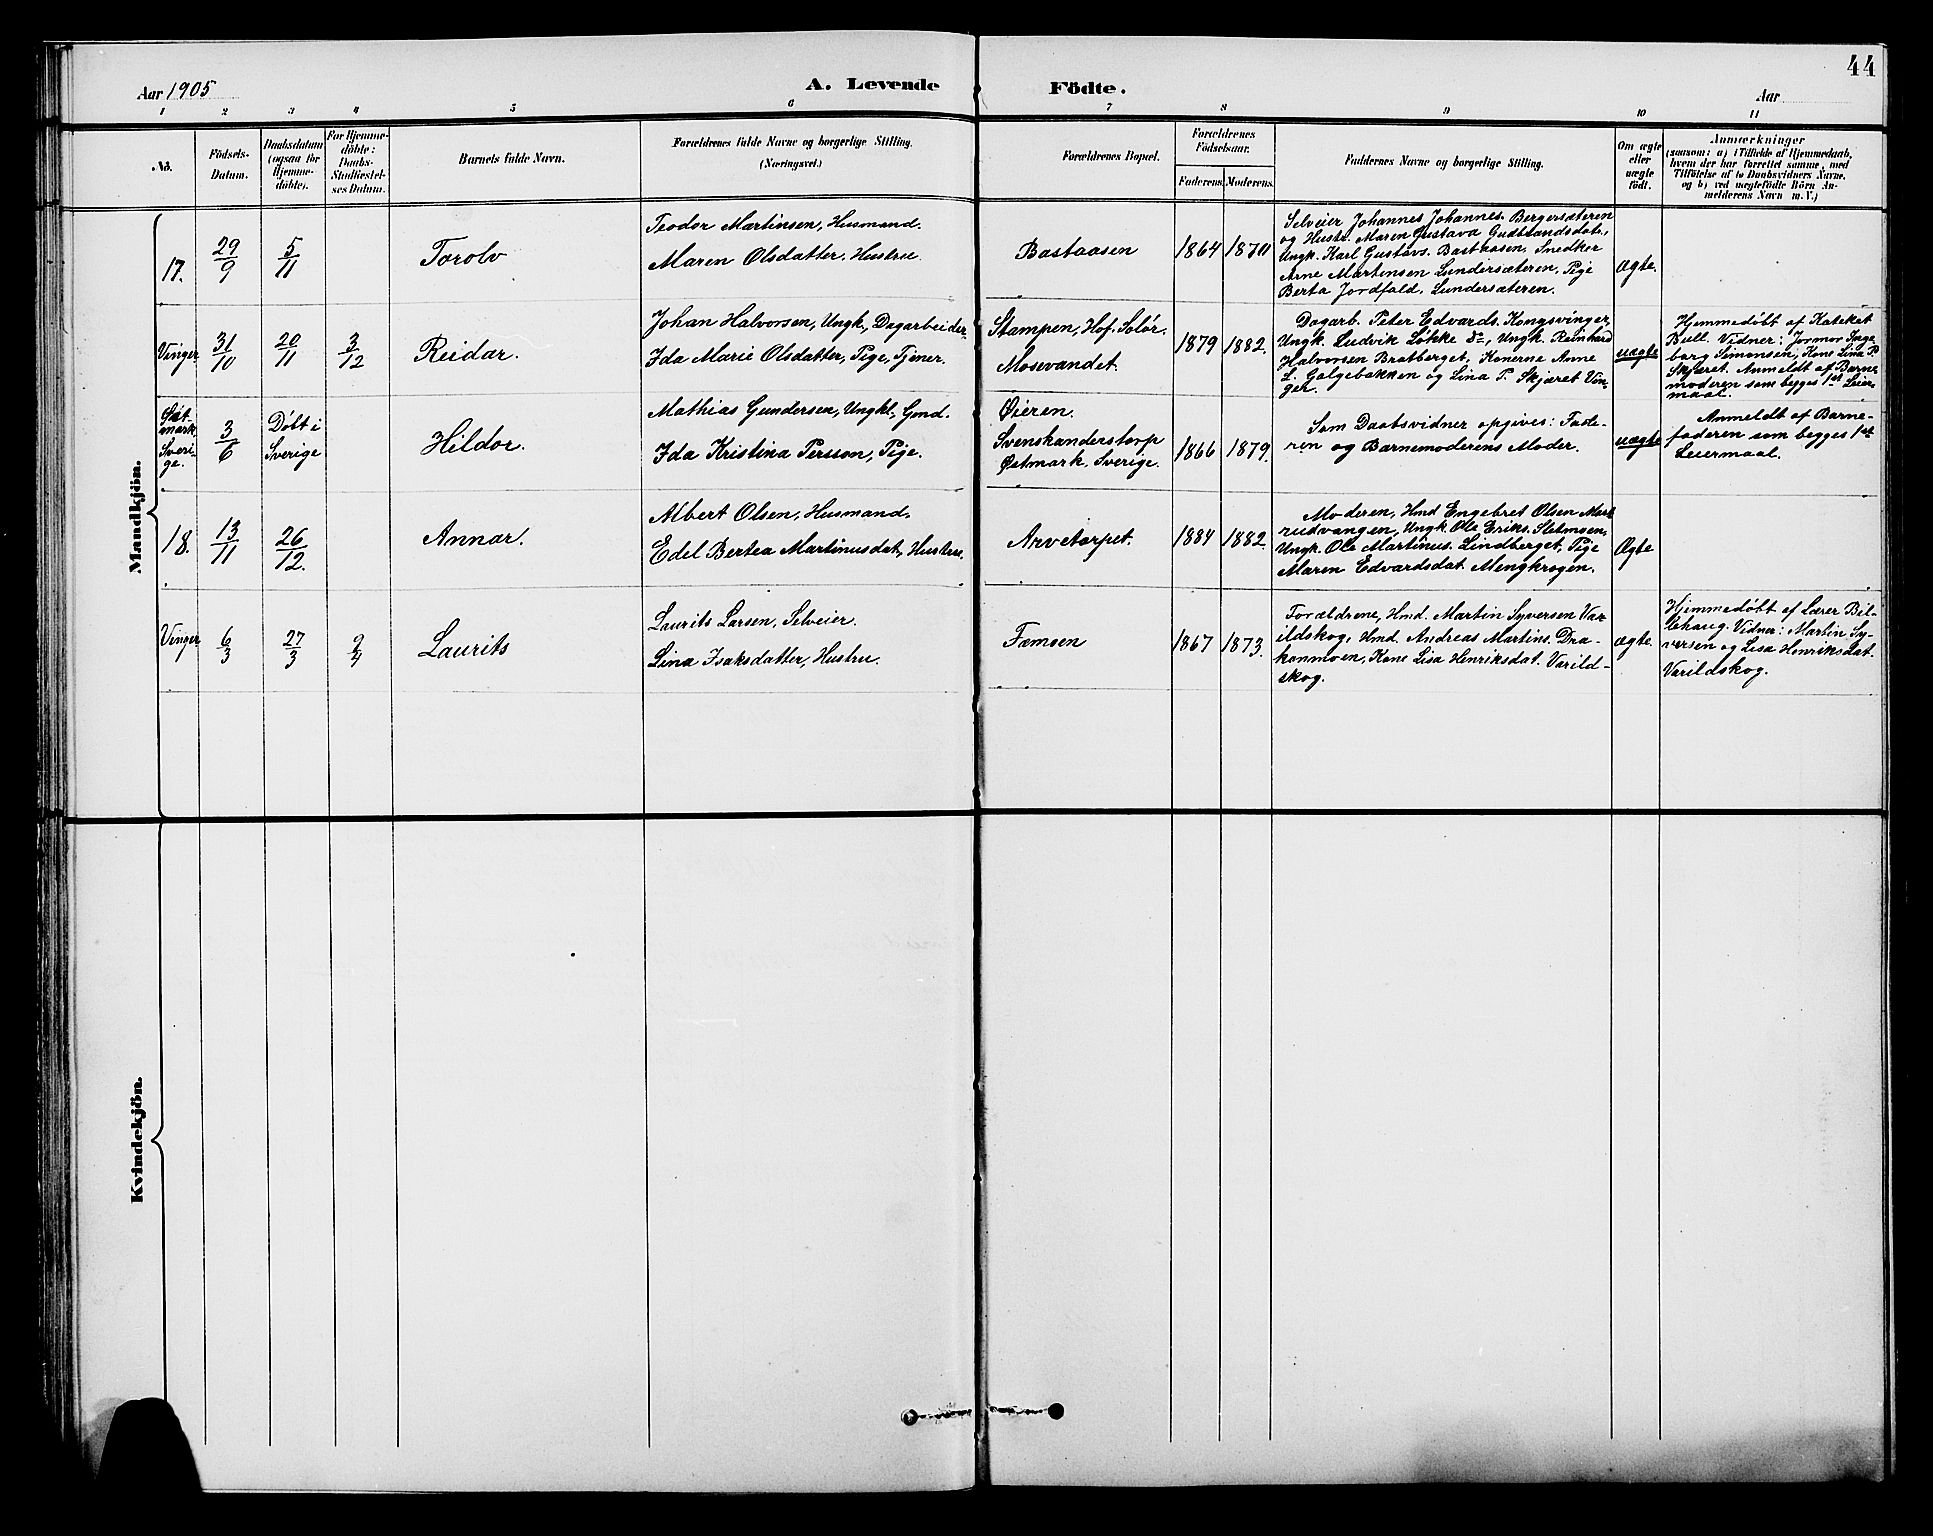 44
Aar 1905
A. Levende
Födte.
Aar
1 2 3 4 5 6 7 8 9 10 11
No.
Födsels-
Datum.
Daabsdatum
(ogsaa for
Hjemme-
döbte).
For Hjemme-
döbte:
Daabs-
Stadfæstel-
ses Datum.
Barnets fulde Navn.
Forældrenes fulde Navne og borgerlige Stilling.
(Næringsvei.)
Forældrenes Bopæl.
Forældrenes
Födselsaar.
Faderens. Moderens.
Faddernes Navne og borgerlige Stilling.
Om ægte
eller
uægte
födt.
Anmærkninger
(saasom: a) i Tilfælde af Hjemmedaab,
hvem der har forrettet samme, med
Tilföielse af to Daabsvidners Navne,
og b) ved uægtefödte Börn An-
melderens Navn m. V.)
Mandkjön.
17.
29/9
5/11
Torolv
Teodor Martinsen, Husmand.
Maren Olsdatter, Hustru.
Bastaasen
1864 1870
Selveier Johannes Johannes. Bergersæteren
og Hustr. Maren Gustava Gudbrandsdatr.,
Ungk. Karl Gustavs. Bastaasen, Snedker
Arne Martinsen Lundersæteren, Pige
Berta Jordfald, Lundersæteren.
Ægte.
Vinger
31/10
20/11
3/12
Reidar.
Johan Halvorsen, Ungk., Dagarbeider
Ida Marie Olsdatter, Pige, Tjener.
Stampen, Hof. Solør.
Mosevandet.
1879 1882.
Dagarb. Peter Edvards. Kongsvinger,
Ungk. Ludvik Løkke do, Ungk. Reinhard
Halvorsen Bratberget, Konerne Anne
L. Galgebakken og Lina P. Skjæret Vin-
ger.
uægte
Hjemmedøbt af Kateket
Bull. Vidner: Jormor Inge
borg Simonsen, Kone Lina P.
Skjæret. Anmeldt af Barne
moderen som begges 1ste Leier-
maal.
Øst-
mark,
Sveri-
ge.
3/6
Døbt i
Sverige
Hildor.
Mathias Gundersen, Ungkl, Gmd.
Ida Kristina Persson, Pige.
Øieren.
Svenskanderstorp
Østmark, Sverige.
1866 1879.
Som Daabsvidner opgives: Fade-
ren og Barnemoderens Moder.
uægte
Anmeldt af Barne-
faderen som begges 1ste
Leiermaal.
18.
13/11
26/12.
Annar.
Albert Olsen, Husmand.
Edel Bertea Martinusdat, Hustru.
Arvetorpet.
1884 1882.
Moderen, Hmd Engebret Olsen
rudvangen, Ungk. Ole Eriks. Sletmoen,
Ungk. Ole Martinus. Lindberget, Pige
Maren Edvardsdat. Mengkrogen.
Ægte
Vinger
6/3
27/3
9/4
Laurits
Laurits Larsen, Selveier.
Lina Isaksdatter, Hustru.
Fæmsen
1867 1873.
Forældrene, Hmd. Martin Syversen Va-
rildskog, Hmd. Andreas Martins. Dra-
konmoen, Kone Lisa Henriksdat. Varild-
skog.
Ægte.
Hjemmedøbt af Lærer Bil-
behaug. Vidner: Martin Sy-
versen og Lisa Henriksdat.
Varildskog.
Kvindekjön.